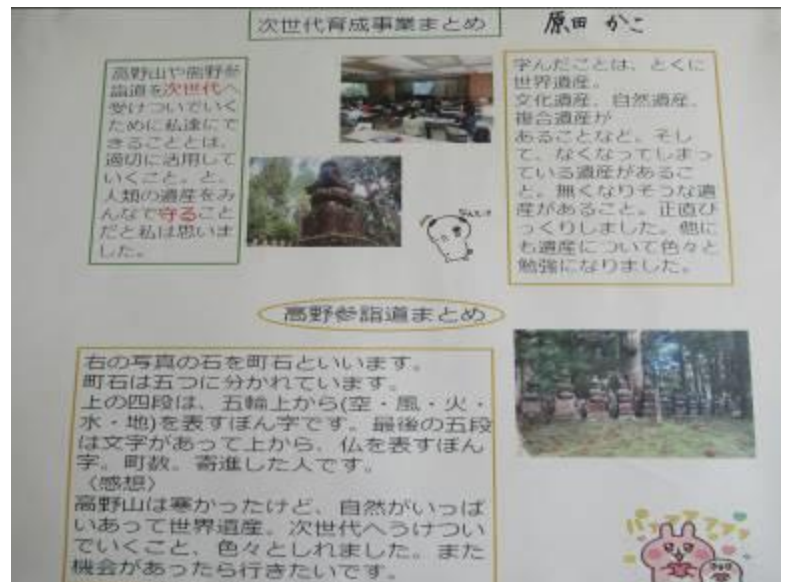 次世代育成事業まとめ
原田 かこ
高野山や熊野参
詣道を次世代へ
受けついでいく
ために私達にで
きることとは、
適切に活用して
いくこと。と、
人類の遺産をみ
んなで守ること
だと私は思いま
した。
学んだことは、とくに
世界遺産。
文化遺産、自然遺産、
複合遺産が
あることなど。そし
て、なくなってしまっ
ている遺産があるこ
と。無くなりそうな遺
産があること。正直び
っくりしました。他に
も遺産について色々と
勉強になりました。
高野参詣道まとめ
右の写真の石を町石といいます。
町石は五つに分かれています。
上の四段は、五輪上から(空・風・火・
水・地)を表すぼん字です。最後の五段
は文字があって上から、仏を表すぼん
字。町数。寄進した人です。
〈感想〉
高野山は寒かったけど、自然がいっぱ
いあって世界遺産。次世代へうけつい
でいくこと、色々としれました。また
機会があったら行きたいです。